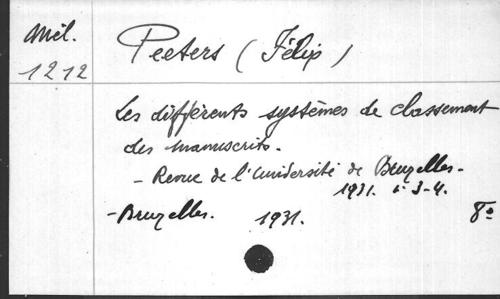 Mél.
1212
Peeters (Félix)
Les différents systèmes de classement
des manuscrits.
- Revue de l'Université de Bruxelles.
1931. n° 3-4.
- Bruxelles. 1931. 8°